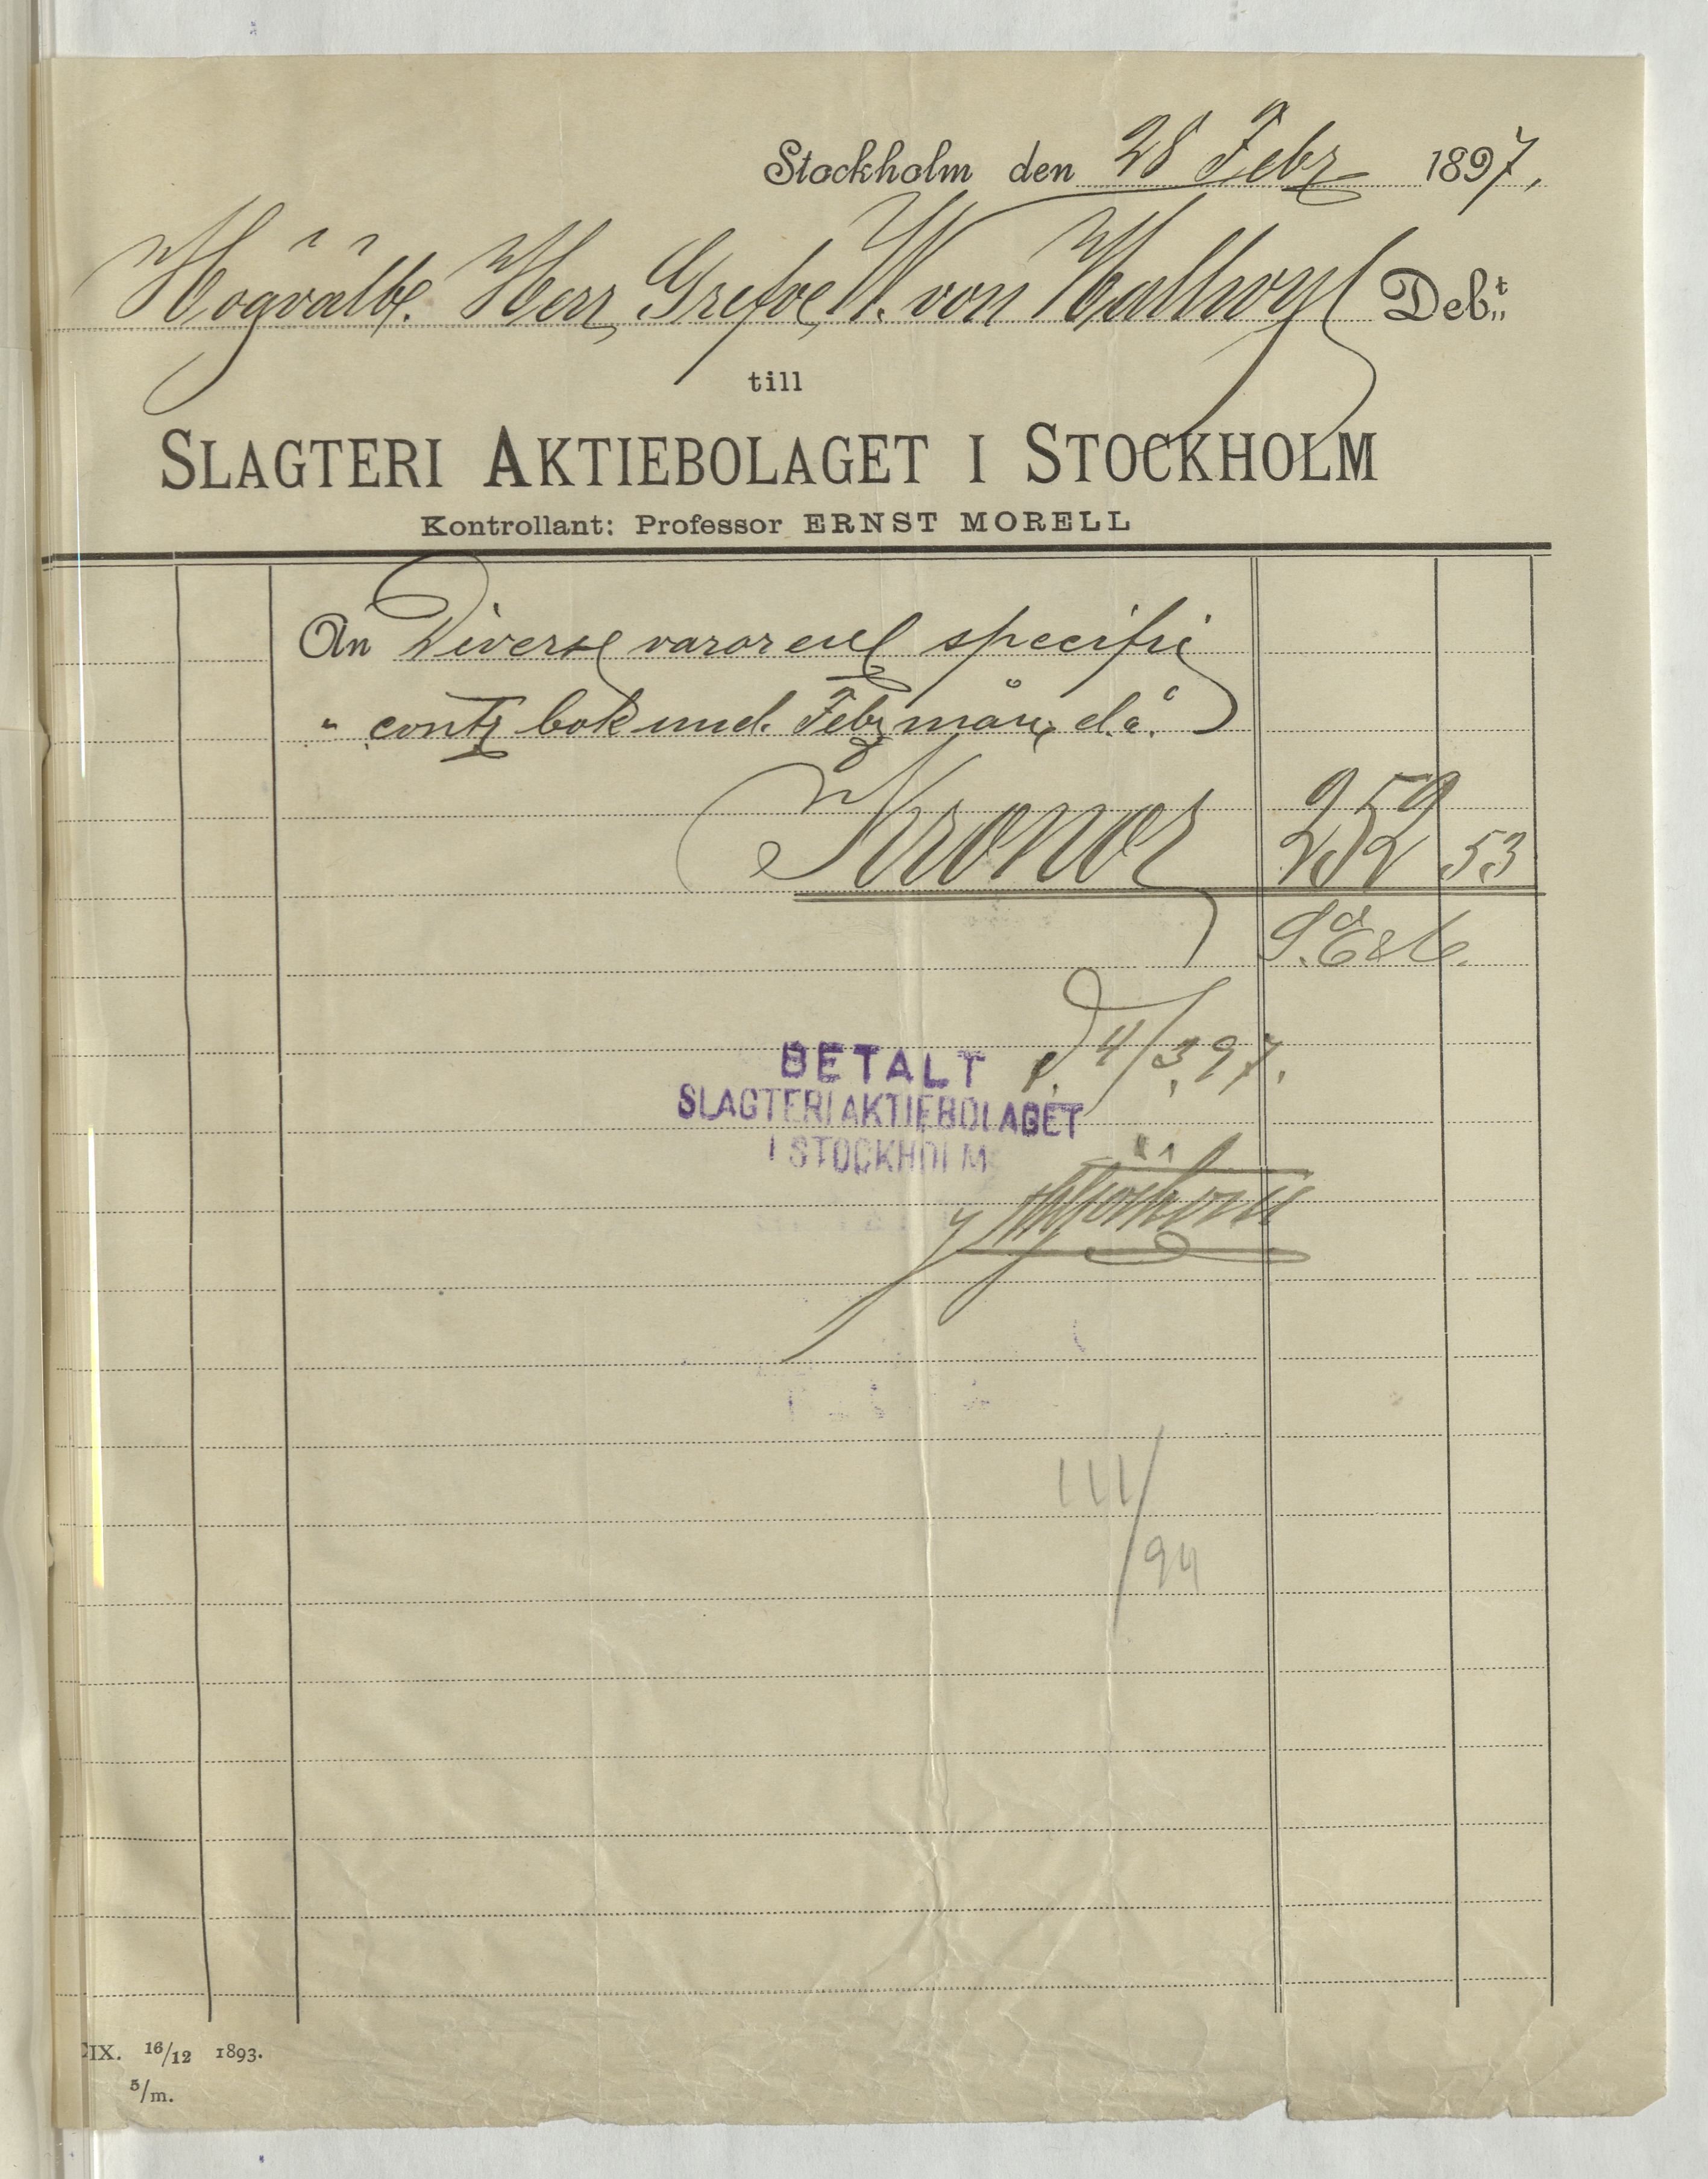 Stockholm den 28 Febr 1897.
Högvälb. Herr Grefve W. von Hallwyl Debt.
till
SLAGTERI AKTIEBOLAGET I STOCKHOLM
Kontrollant: Professor ERNST MORELL
An Diverse varor enl specifi
" contr bok und. Febr mån d.å.
Kronor 252 53
S. E & O.
BETALT d 4/3 97.
SLAGTERIAKTIEBOLAGET
I STOCKHOLM
111/94
IX. 16/12 1893.
5/m.